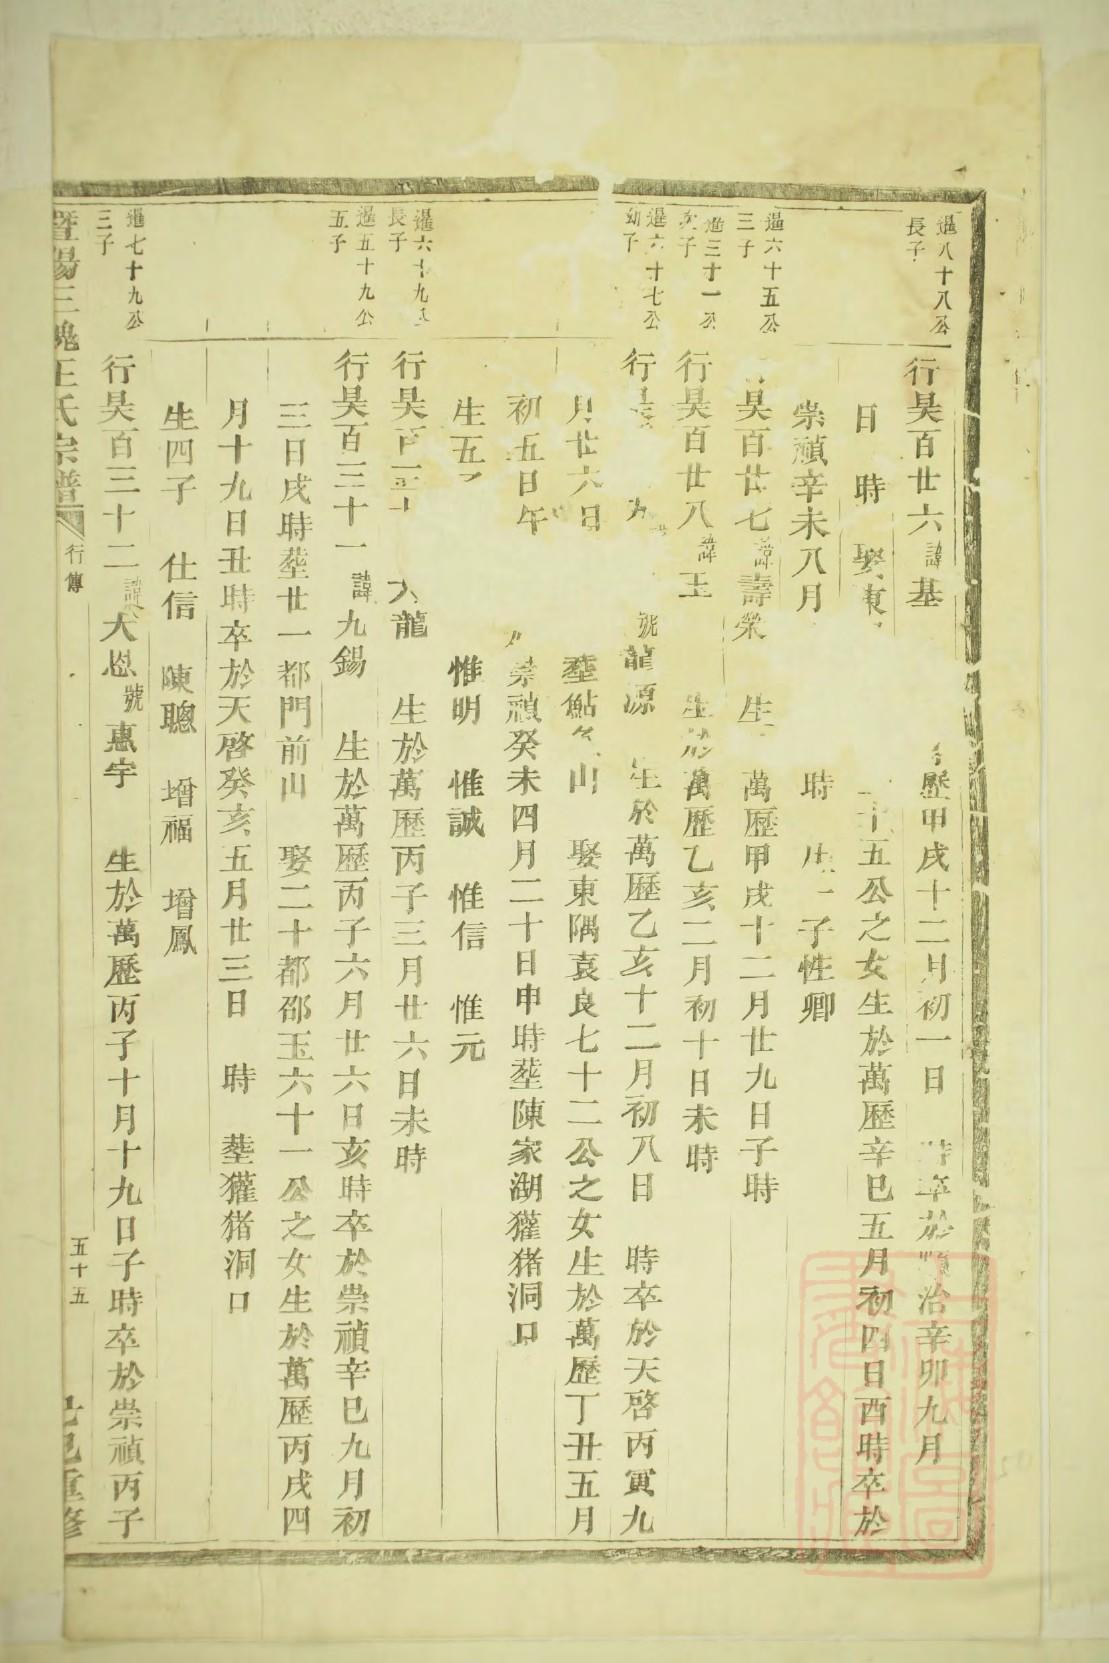 邊八十八公
長子
行昊百廿六諱基 歷甲戌十二月初一日 時卒於順治辛卯九月
日 時 娶東 十五公之女生於萬歷辛巳五月初四日酉時卒於
崇禎辛未八月 時 子性卿
邊六十五公
三子
昊百廿七諱壽榮 生 萬歷甲戌十二月廿九日子時
邊三十一公
次子
行昊百廿八諱玉 生於萬歷乙亥二月初十日未時
邊六十七公
幼子
行昊 號龍源 生於萬歷乙亥十二月初八日 時卒於天啓丙寅九
月廿六日 塟鮎 山 娶東隅袁良七十二公之女生於萬歷丁丑五月
初五日午 崇禎癸未四月二十日申時塟陳家湖獾猪洞口
生五 惟明 惟誠 惟信 惟元
邊六十九公
長子
行昊百三十 龍 生於萬歷丙子三月廿六日未時
邊五十九公
五子
行昊百三十一諱九錫 生於萬歷丙子六月廿六日亥時卒於崇禎辛巳九月初
三日戌時塟廿一都門前山 娶二十都邵玉六十一公之女生於萬歷丙戌四
月十九日丑時卒於天啓癸亥五月廿三日 時 塟獾猪洞口
生四子 仕信 陳聰 增福 增鳳
邊七十九公
三子
行昊百三十二諱大恩號惠宇 生於萬歷丙子十月十九日子時卒於崇禎丙子
暨陽三槐王氏宗譜 行傳 五十五 己巳重修